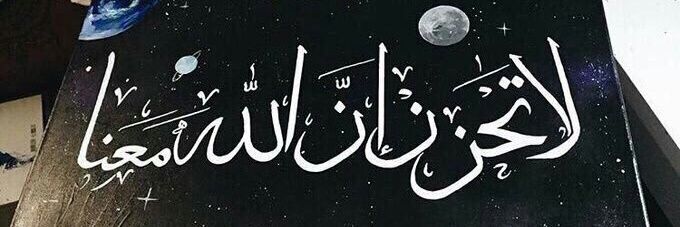 لا تحزن إنَّ اللّٰه مَعَنا